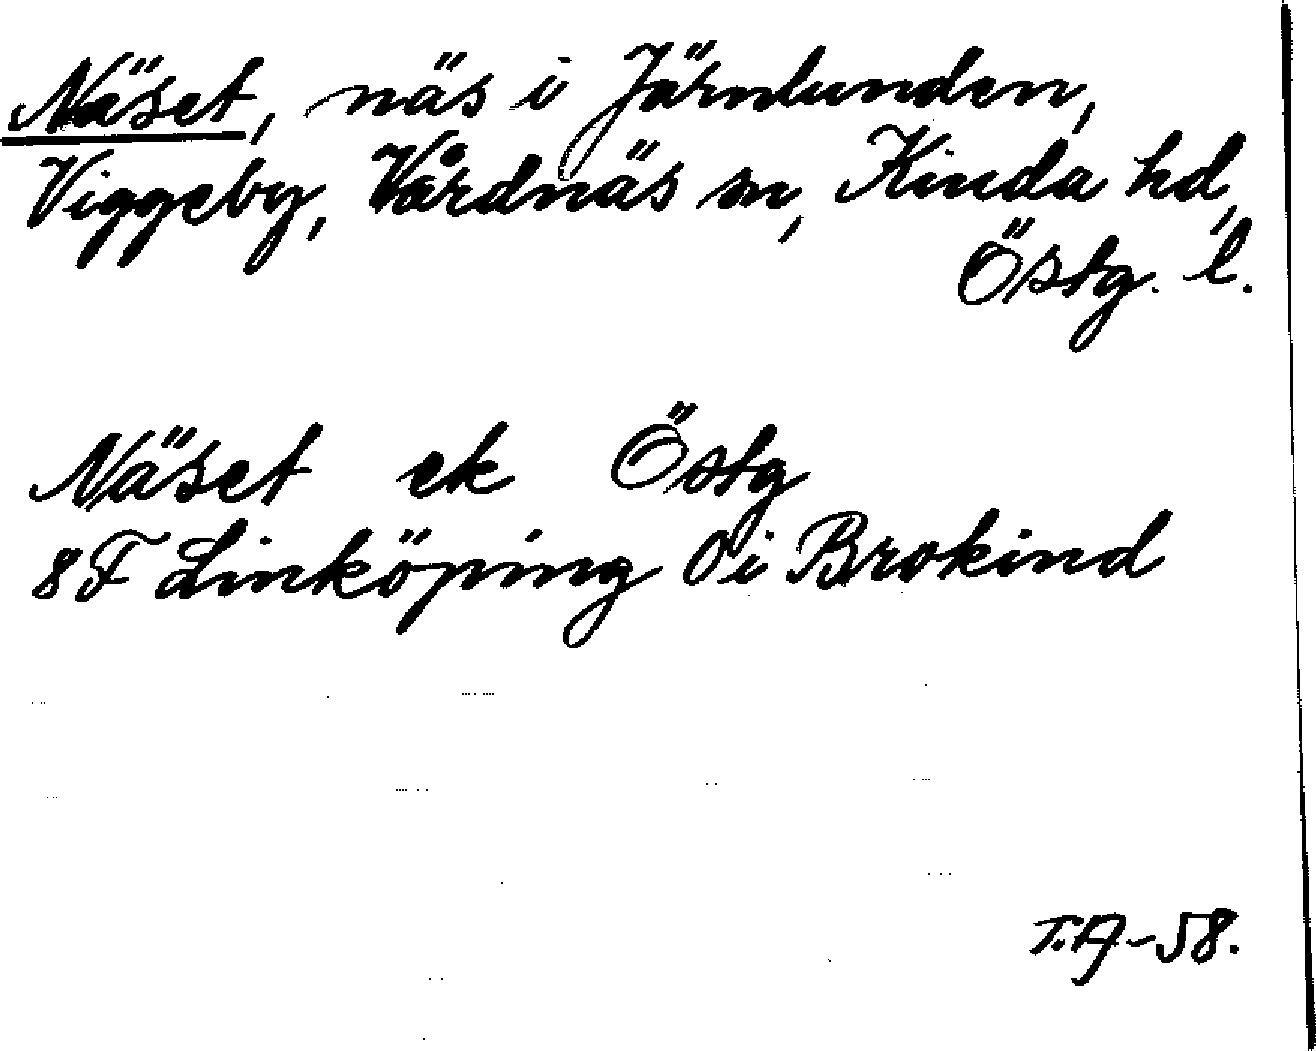 Näset, näs i Järnlunden,
Viggeby, Vårdnäs sn, Kinda hd,
Östg. l.
Näset ek Östg
8F Linköping O i Brokind
T.A-58.